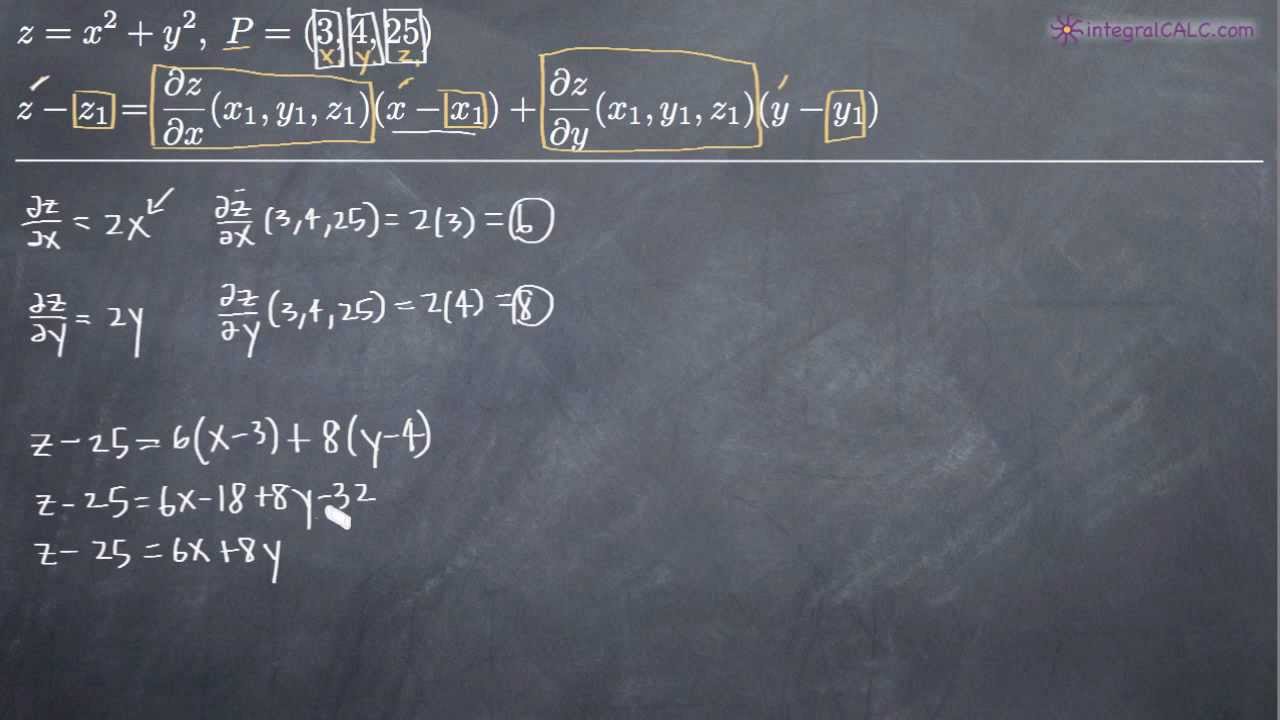 z = x² + y², P = (3, 4, 25)
integralCALC.com
x₁ y₁ z₁
z − z₁ = ∂z/∂x (x₁, y₁, z₁)(x − x₁) + ∂z/∂y (x₁, y₁, z₁)(y − y₁)
∂z/∂x = 2x ∂z/∂x (3,4,25) = 2(3) = 6
∂z/∂y = 2y ∂z/∂y (3,4,25) = 2(4) = 8
z − 25 = 6(x−3) + 8(y−4)
z − 25 = 6x − 18 + 8y − 32
z − 25 = 6x + 8y